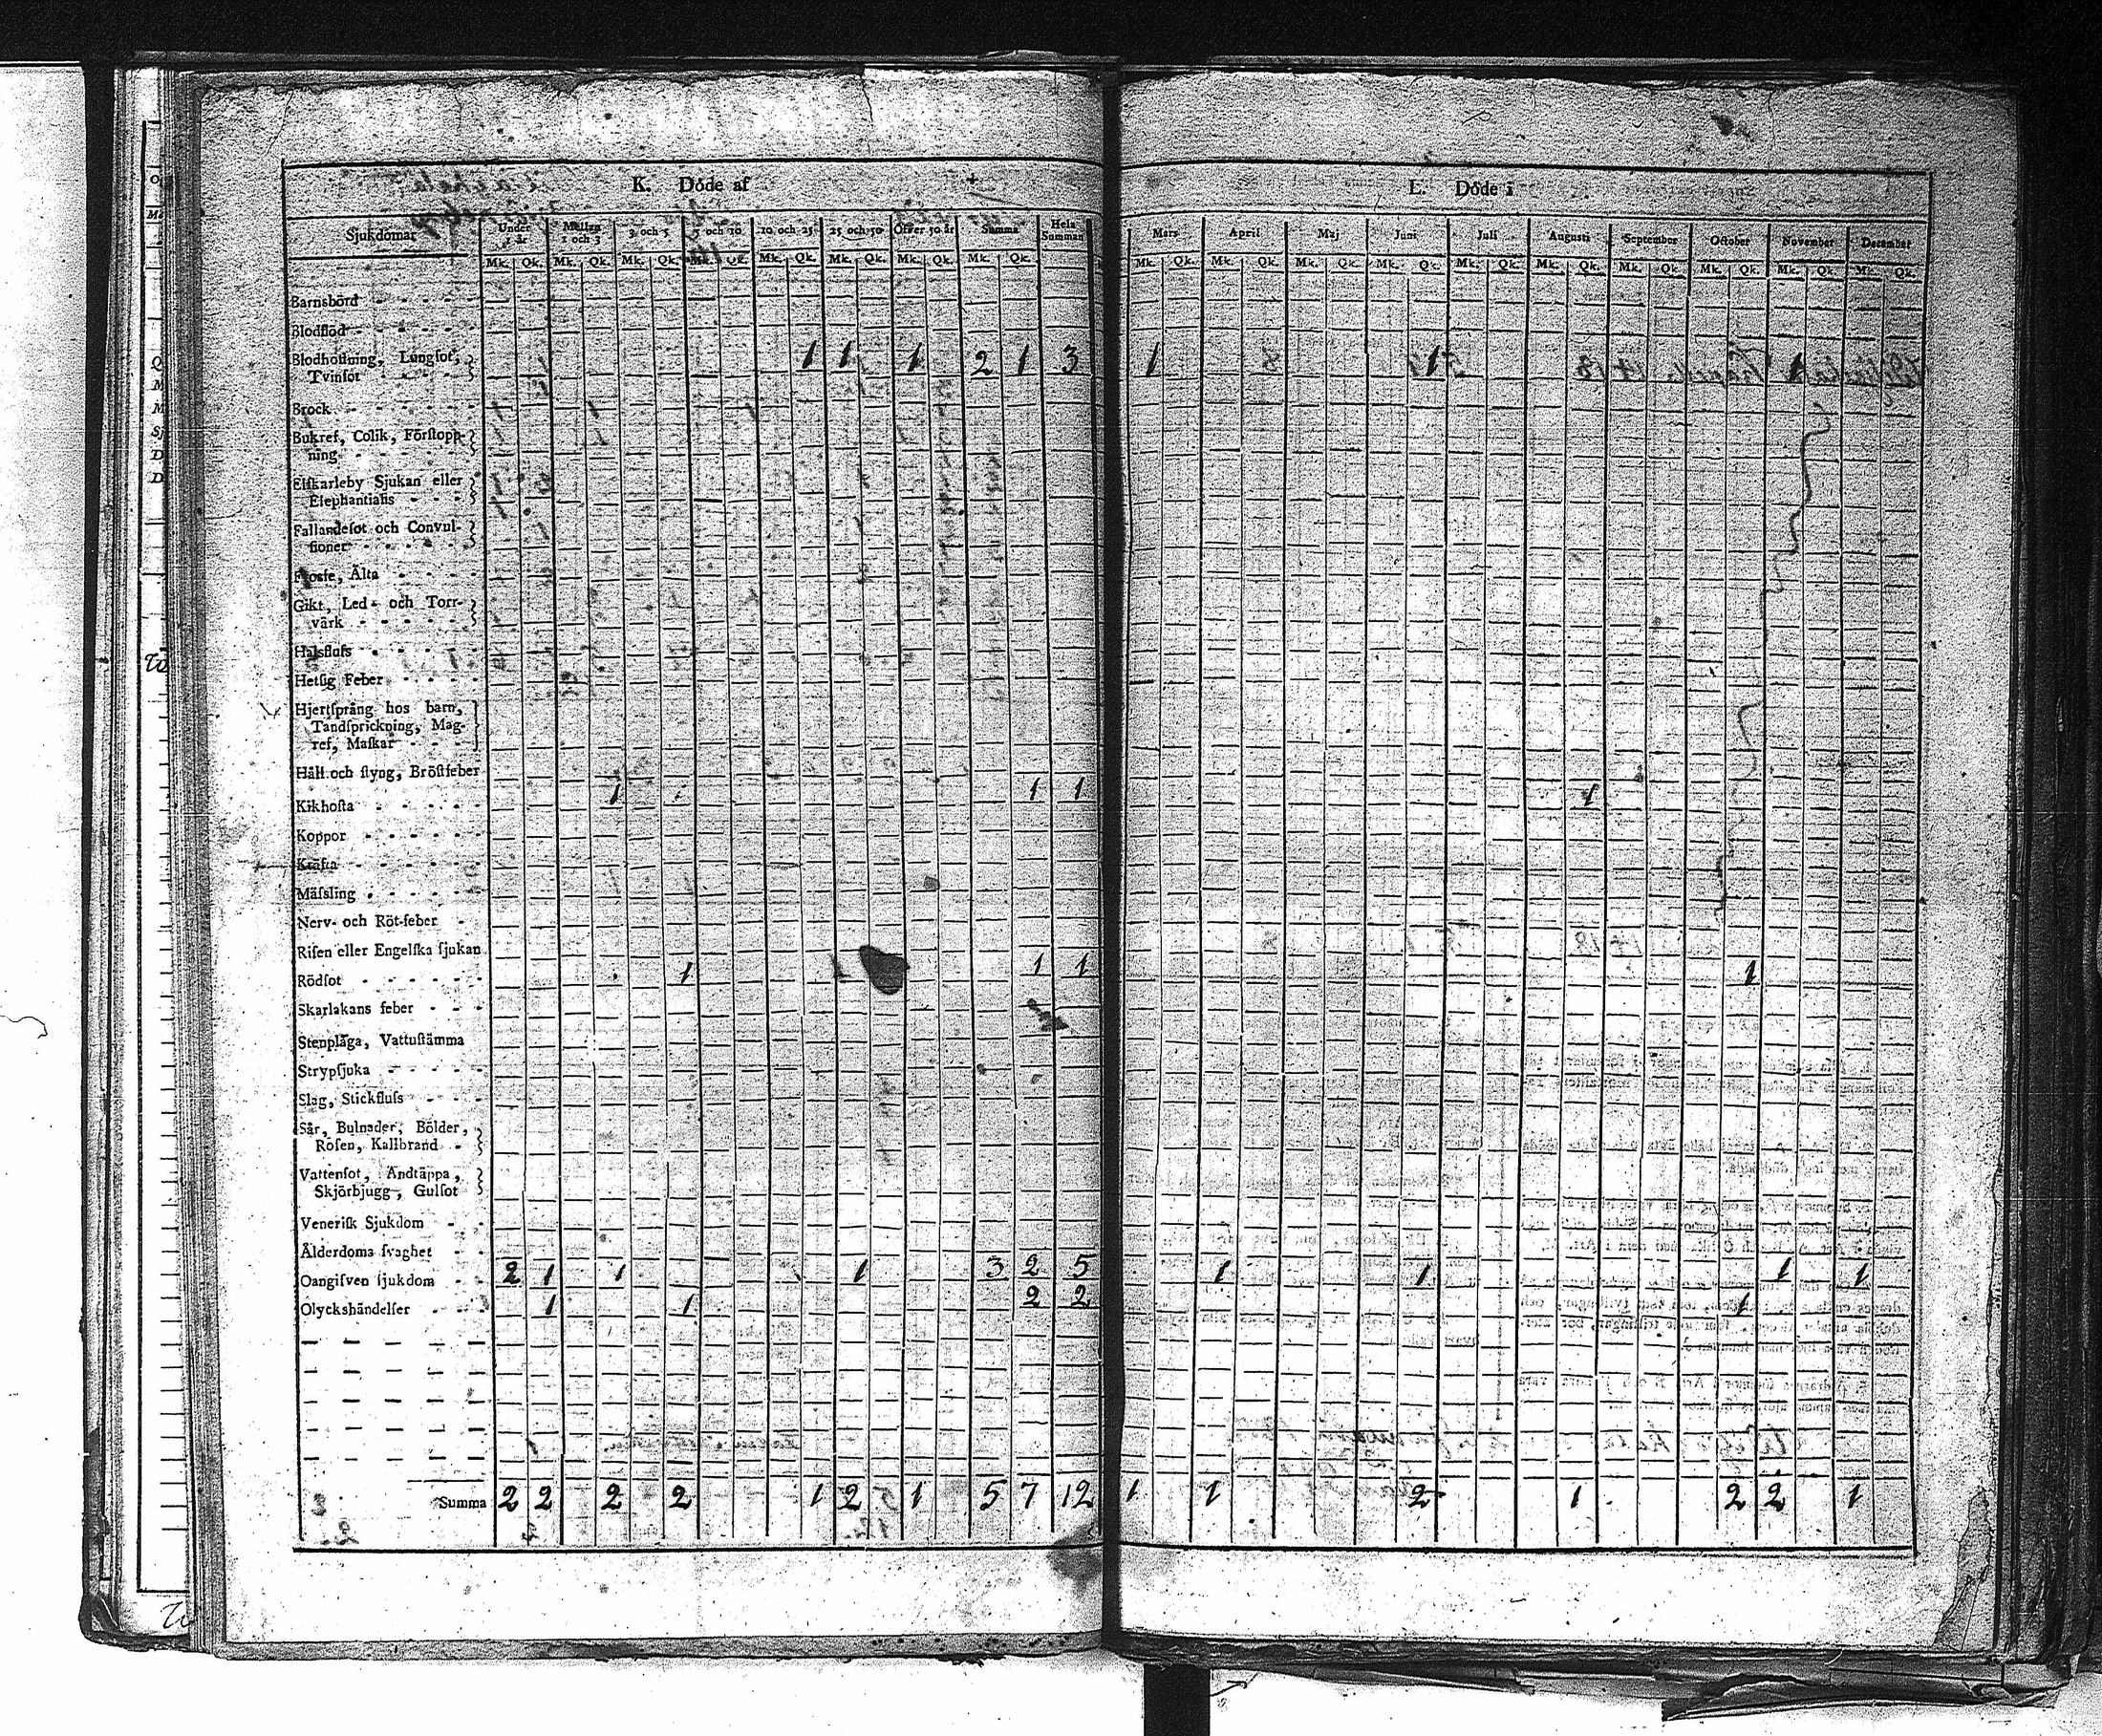 K. Döde af
L. Döde i
Sjukdomar Under 1 år Mellan 1 och 3 3 och 5 5 och 10 10 och 25 25 och 50 Öfver 50 år Summa Hela Summan Mars April Maj Juni Juli Augusti September October November December
Mk. Qk. Mk. Qk. Mk. Qk. Mk. Qk. Mk. Qk. Mk. Qk. Mk. Qk. Mk. Qk. Mk. Qk. Mk. Qk. Mk. Qk. Mk. Qk. Mk. Qk. Mk. Qk. Mk. Qk. Mk. Qk. Mk. Qk. Mk. Qk.
Barnsbörd
Blodflöd
Blodhostning, Lungsot, 1 1 1 2 1 3 1 1 1
Tvinsot
Brock
Bukref, Colik, Förstopp-
ning
Elfkarleby Sjukan eller
Elephantiasis
Fallandesot och Convul-
sioner
Frosse, Älta
Gikt, Led- och Torr-
värk
Halsfluss
Hetsig Feber
Hjertsprång hos barn,
Tandsprickning, Mag-
ref, Maskar
Håll och styng, Bröstfeber
Kikhosta 1 1 1 1
Koppor
Kräfta
Mässling
Nerv- och Röt-feber
Risen eller Engelska sjukan
Rödsot 1 1 1 1
Skarlakans feber
Stenplåga, Vattustämma
Strypsjuka
Slag, Stickfluss
Sår, Bulnader, Bölder,
Rosen, Kallbrand
Vattensot, Andtäppa,
Skjörbjugg, Gulsot
Venerisk Sjukdom
Ålderdoms svaghet
Oangifven sjukdom 2 1 1 1 3 2 5 1 1 1 1
Olyckshändelser 1 1 2 2 1
Summa 2 2 2 2 1 2 1 5 7 12 1 1 2 1 2 2 1